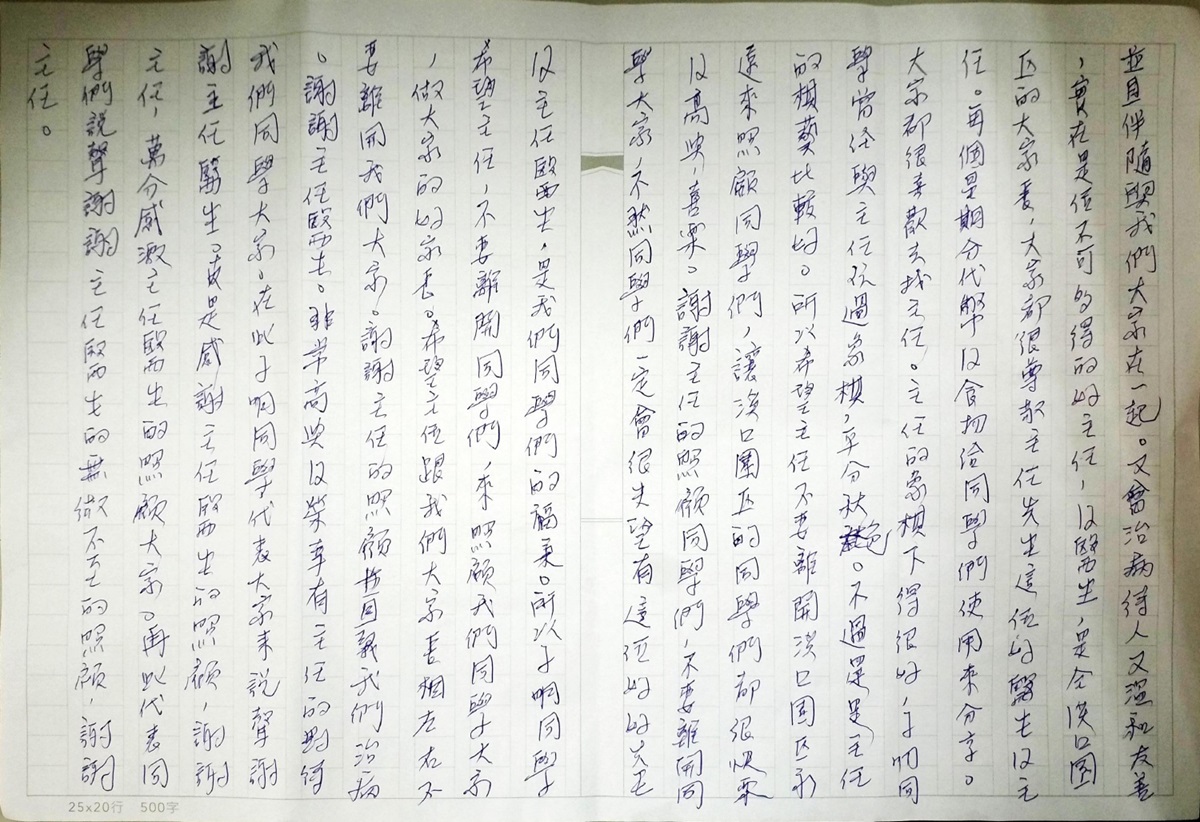 並且伴隨與我們大家在一起。又會治病待人又溫和友善
，實在是位不可多得的好主任，及醫生，是全淡口園
区的大家長，大家都很尊敬主任先生這位好醫生及主
任。每個星期分代幣及食物給同學們使用來分享。
大家都很喜歡去找主任。主任的象棋下得很好，子明同
學曾经與主任玩過象棋，平分秋色。不過還是主任
的棋藝比較好。所以希望主任不要離開淡口園区永
遠來照顧同學們，讓淡口園区的同學們都很快樂
及高興，喜樂。謝謝主任的照顧同學們，不要離開同
學大家，不然同學們一定會很失望有這位好的
及主任醫生，是我們同學們的福氣。所以子明同學
希望主任，不要離開同學們，來照顧我們同學大家
，做大家的好家長。希望主任跟我們大家長相左右不
要離開我們大家。謝謝主任的照顧並且幫我們治病
。謝謝主任醫生。非常高興及榮幸有主任的對待
我們同學大家。在此子明同學代表大家来說聲謝
謝主任醫生。真是感謝主任醫生的照顧，謝謝
主任，萬分感激主任醫生的照顧大家。再此代表同
學們説聲謝謝主任醫生的無微不至的照顧，謝謝
主任。
25x20行 500字